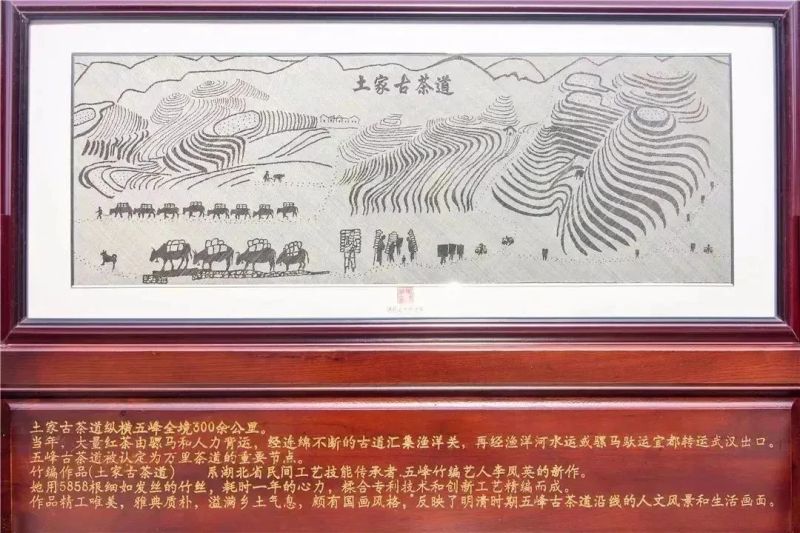 土家古茶道
土家古茶道纵横五峰全境300余公里。
当年，大量红茶由骡马和人力背运，经连绵不断的古道汇集渔洋关，再经渔洋河水运或骡马驮运宜都转运武汉出口。
五峰古茶道被认定为万里茶道的重要节点。
竹编作品(土家古茶道) 系湖北省民间工艺技能传承者、五峰竹编艺人李凤英的新作。
她用5858根细如发丝的竹丝，耗时一年的心力，糅合专利技术和创新工艺精编而成。
作品精工唯美，雅典质朴，溢满乡土气息，颇有国画风格，反映了明清时期五峰古茶道沿线的人文风景和生活画面。